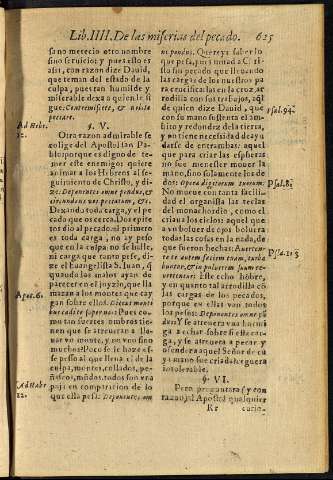 Lib. IIII. De las miserias del pecado. 625
sa no merecio otro nombre
sino seruicio: y pues ello es
assi, con razon dize Dauid,
que teman del estado de la
culpa, pues tan humilde y
miserable dexa a quien le si
gue: Contremiscere, & nolite
peccare.
§. V.
Ad Hebr.
12.
Otra razon admirable se
colige del Apostol san Pa
blo: porque es digno de te-
mer este enemigo: quiere
animar a los Hebreos al se-
guimiento de Christo, y di-
ze: Deponentes omne pondus, &
circundans nos peccatum, &c.
Dexando toda carga, y el pe
cado que os cerca. Dos epite
tos dio al pecado: el primero
es toda carga, no ay peso
que en la culpa no se halle,
ni carga que tanto pese, di-
ze el Euangelista S. Iuan, q
quando los malos ayan de
parecer en el juyzio, que lla
Apoc. 6.
mazan a los montes que cay
gan sobre ellos. Dicent monti
bus cadite super nos: Pues co-
mo tan fuertes ombros tie-
nen que se atreueran a lleuar
vn monte, y no vno sino
muchos? Poco se le haze es-
se peso al que lleua el de la
culpa, montes, collados, pe-
ñascos, mũdos, todos son vna
Ad Hebr.
12.
paja en comparacion de lo
que ella pesa: Deponentes om
ne pondus. Quereys saber lo
que pesa, pues mirad a Chri-
sto sin pecado que lleuando
las cargas de los nuestros pa
ra crucificarlas en la cruz, ar
rodilla con sus trabajos, aql
de quien dize Dauid, que
Psal. 94.
con su mano sustenta el am-
bito y redondez de la tierra,
y no tiene necesidad de ayu
darse de entrambas: aquel
que para criar las espheras
no fue menester mouer la
mano, sino solamente los de
dos: Opera digitorum tuorum.
Psal. 8.
No mueue con tanta facili-
dad el organista las teclas
del monachordio, como el
crio a los cielos: aquel que
a vn boluer de ojos boluera
todas las cosas en la nada, de
que fueron hechas: Auerten-
te te autem faciem tuam, turba
Psal. 103
buntur, & in puluerem suum re-
uertentur: Este echo hõbre,
y en quanto tal arrodilla cõ
las cargas de los pecados,
porque en ellas van todos
los pesos: Deponentes omne põ
dus: Y se atreuera vna hormi
ga a echar sobre si esse car-
ga, y se atreuera a pecar y
ofender a aquel Señor de cu
ya mano fue criada? clguera
intolerable.
§. VI.
Pero preguntara (y con
razon) al Apostol qualquier
Rr curio-